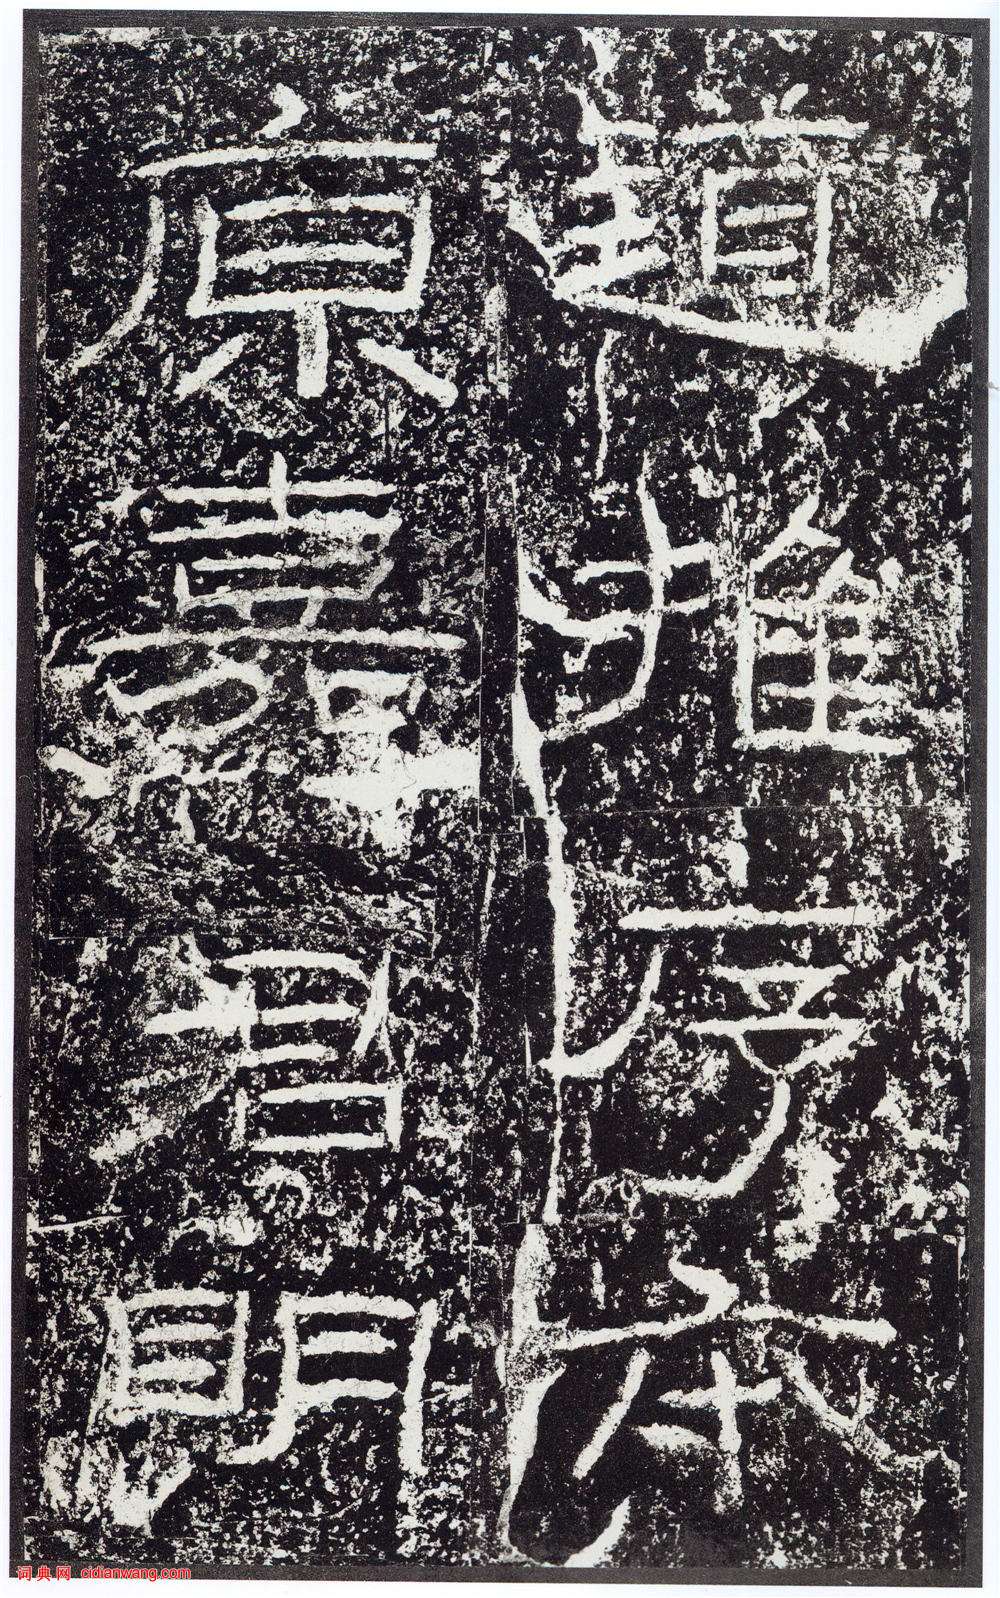 道推序本
原嘉君明
词典网 cidianwang.com